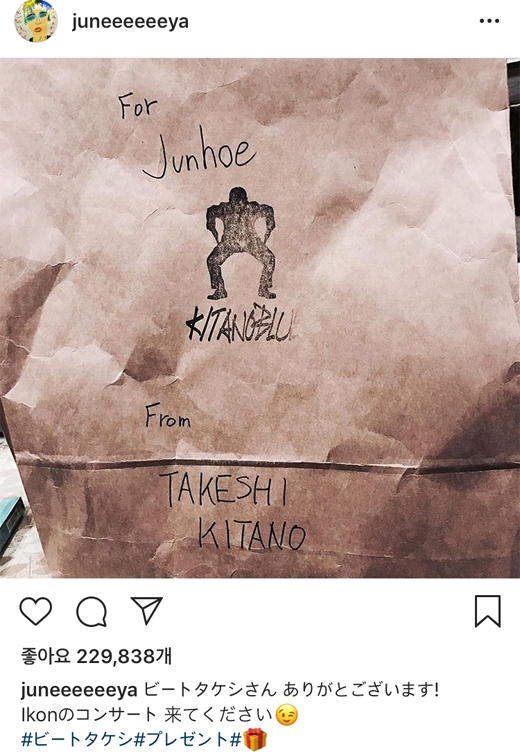 juneeeeeeya
For
Junhoe
KITANOBLU
From
TAKESHI
KITANO
좋아요 229,838개
juneeeeeeya ビートタケシさん ありがとございます!
Ikonのコンサート 来てください😉
#ビートタケシ#プレゼント#🎁